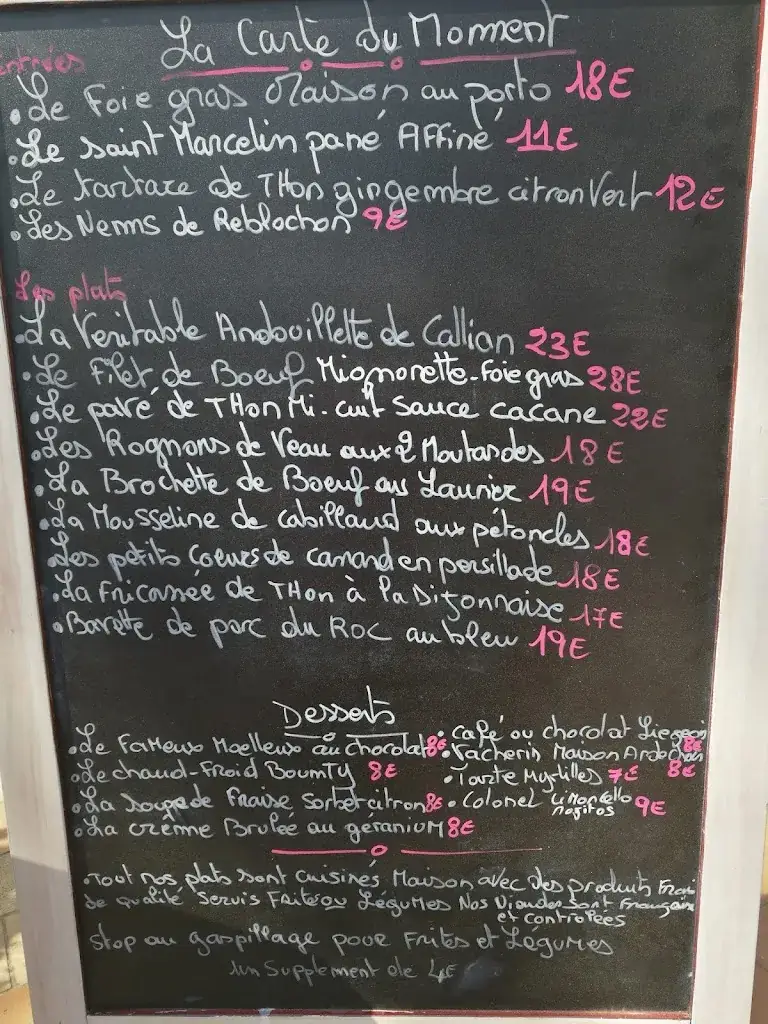 La Carte du Momment
entrées
.Le Foie gras Maison au porto 18E
.Le saint Marcelin pané AFFiné 11E
.Le tartare de THon gingembre citron Vert 12E
.Les Nems de Reblochon 9E
Les plats
.La Veritable Andouillette de Callian 23E
.Le Filet de Boeuf Mignonette-Foie gras 28E
.Le pavé de THon Mi-cuit Sauce cacane 22E
.Les Rognons de Veau aux 2 Moutardes 18E
.La Brochette de Boeuf au Laurier 19E
.La Mousseline de cabillaud aux pétoncles 18E
.Les petits Coeurs de canard en persillade 18E
.La Fricassée de THon à la Dijonnaise 17E
.Bavette de porc du ROC au bleu 19E
Desserts
.Le Fameux Moelleux au chocolat 8E
.Le chaud-Froid BounTy 8E
.La soupe de Fraise Sorbet citron 8E
.La crème Brulée au géranium 8E
.café ou chocolat Liegeois 8E
.Vacherin Maison Ardechois 8E
.Tarte Myrtilles 7E
.Colonel Limoncello Mojitos 9E
.Tout nos plats sont cuisinés Maison avec des produits Frai
de qualité Servis Frite ou Légumes Nos Viandes Sont Française
et controlées
Stop au gaspillage pour Frites et Légumes
un Supplement de 4E